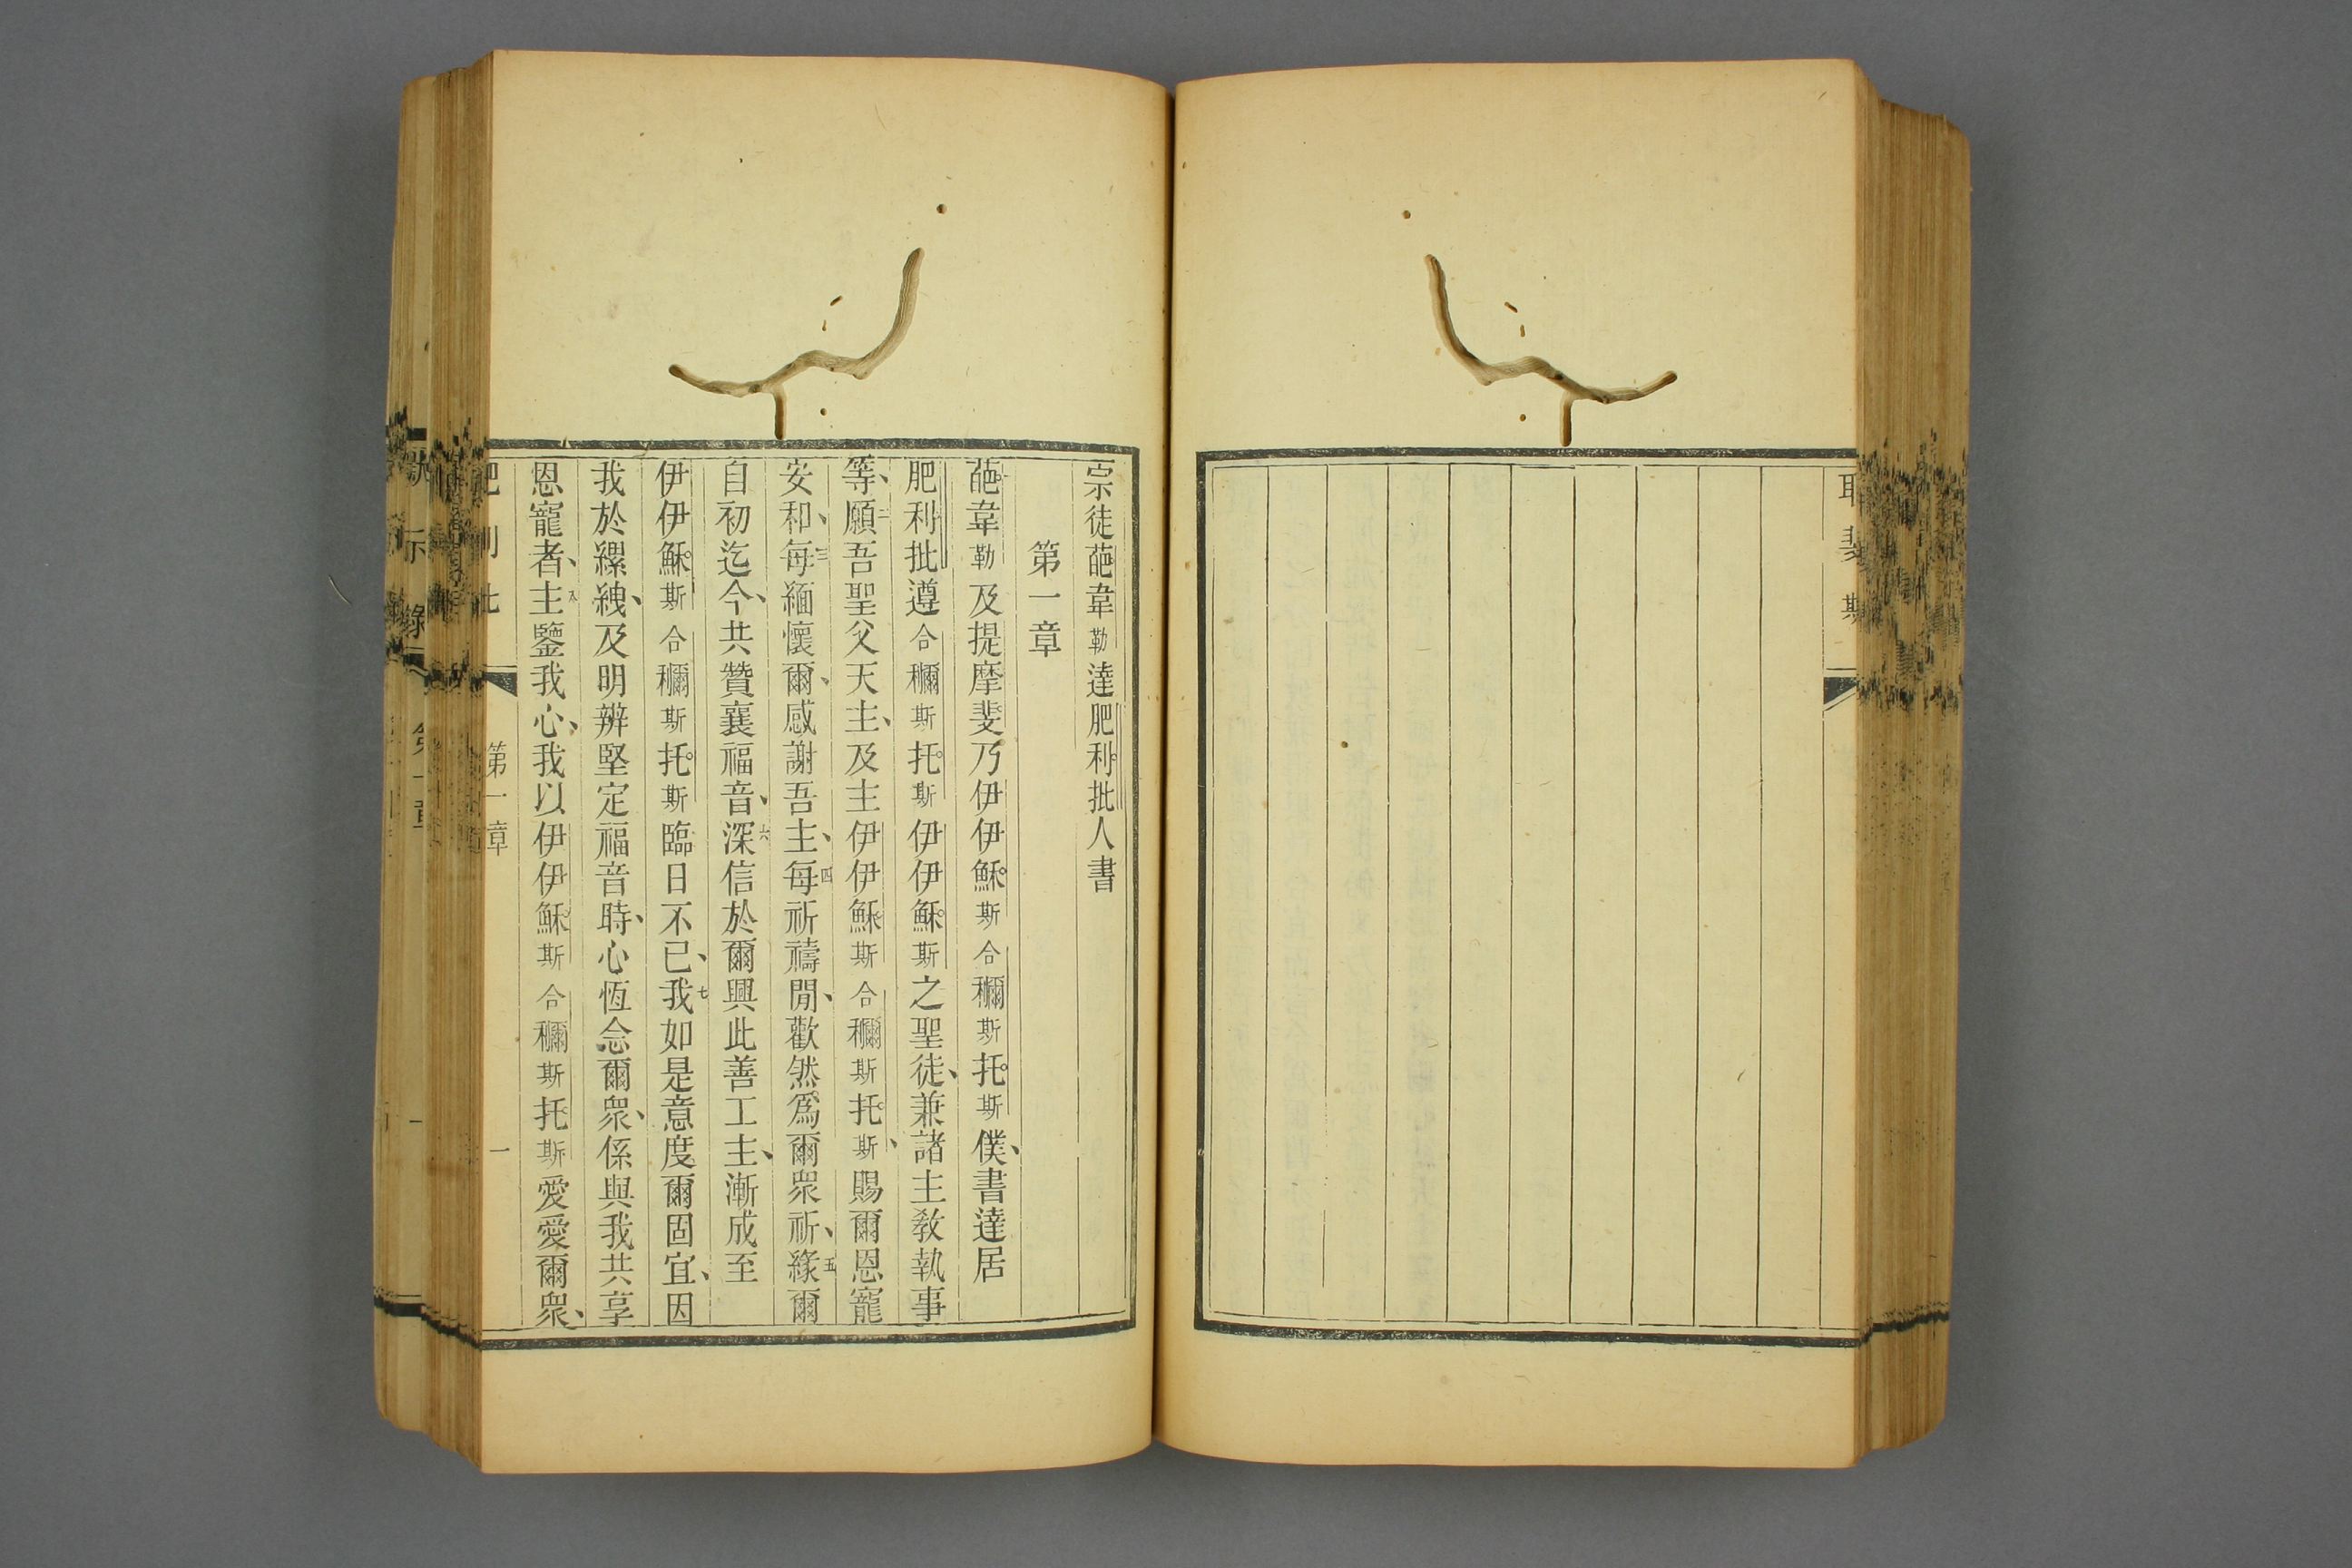 宗徒葩韋勒達肥利批人書
第一章
葩韋勒及提摩斐乃伊伊穌斯合穪斯托斯僕、書達居
肥利批遵合穪斯托斯伊伊穌斯之聖徒、兼諸主敎執事
等、二願吾聖父天主、及主伊伊穌斯合穪斯托斯、賜爾恩寵
安和、三每緬懷爾、感謝吾主、四每祈禱閒、歡然爲爾眾祈、五緣爾
自初迄今、共贊襄福音、六深信於爾興此善工主、漸成至
伊伊穌斯合穪斯托斯臨日不已、七我如是意度爾固宜、因
我於縲絏、及明辨堅定福音時、心恆念爾眾、係與我共享
恩寵者、八主鑒我心、我以伊伊穌斯合穪斯托斯愛愛爾眾、
第一章
一